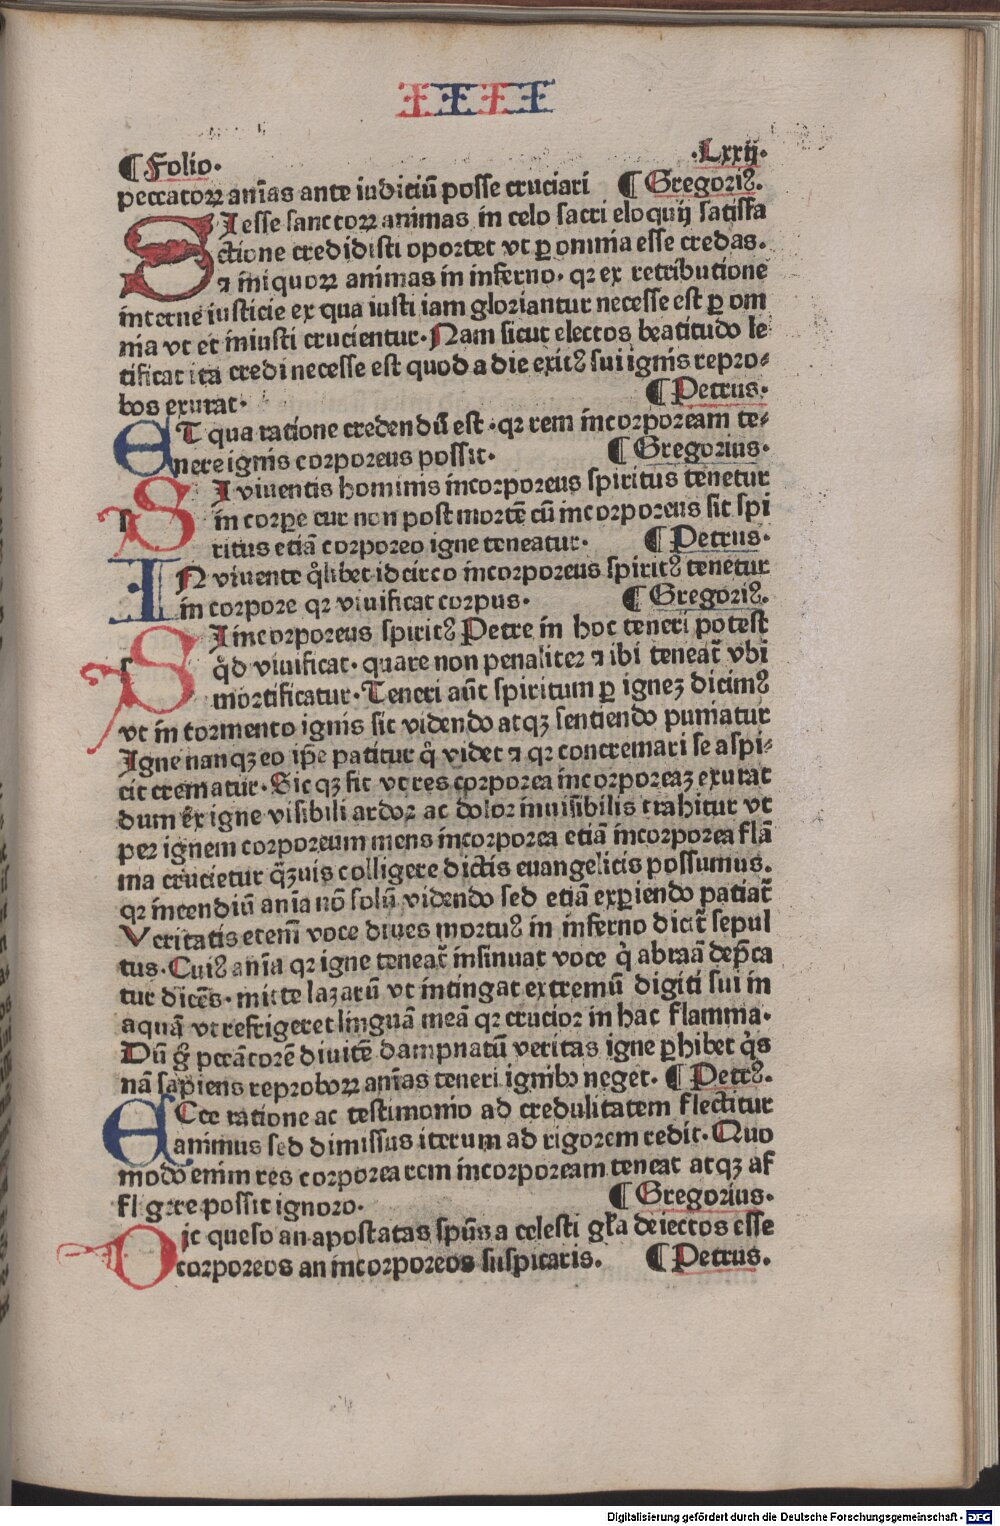 IIII
¶ Folio. .Lxxij.
peccatoꝝ anīas ante iudiciū posse cruciari ¶ Gregoriꝰ.
SI esse sanctoꝝ animas in celo sacri eloquij satisfa
ctione credidisti oportet vt ꝑ omnia esse credas.
⁊ iniquoꝝ animas in inferno. qꝛ ex retributione
interne iusticie ex qua iusti iam gloriantur necesse est ꝑ om
nia vt et iniusti crucientur. Nam sicut electos beatitudo le
tificat ita credi necesse est quod a die exitꝰ sui ignis repro⸗
bos exurat. ¶ Petrus.
ET qua ratione credendū est. qꝛ rem incorpoream te⸗
nere ignis corporeus possit. ¶ Gregorius.
SI viuentis hominis incorporeus spiritus tenetur
in corpꝑe cur non post mortē cū incorporeus sit spi
ritus etiā corporeo igne teneatur. ¶ Petrus.
IN viuente q̊libet idcirco incorporeus spiritꝰ tenetur
in corpore qꝛ viuificat corpus. ¶ Gregoriꝰ.
SI incorporeus spiritꝰ Petre in hoc teneri potest
q̊d viuificat. quare non penaliter ⁊ ibi teneat᷑ vbi
mortificatur. Teneri aūt spiritum ꝑ ignez dicimꝰ
vt in tormento ignis sit videndo atqꝫ sentiendo puniatur
Igne nanqꝫ eo ip̄e patitur q̊ videt ⁊ qꝛ concremari se aspi⸗
cit crematur. Sicqꝫ fit vt res corporea incorporeaꝫ exurat
dum ex igne visibili ardor ac dolor inuisibilis trahitur vt
per ignem corporeum mens incorporea etiā incorporea flā
ma crucietur q̄ꝫuis colligere dictis euangelicis possumus.
qꝛ incendiū anīa nō solū videndo sed etiā exꝑiendo patiat᷑
Veritatis eteni᷒ voce diues mortuꝰ in inferno dicit᷑ sepul
tus. Cuiꝰ anīa qꝛ igne teneat᷑ insinuat voce q̇ abraā dep̄ca
tur dicēs. mitte lazarū vt intingat extremū digiti sui in
aquā vt refrigeret linguā meā qꝛ crucior in hac flamma.
Dū gͦ pctātorē diuitē dampnatū veritas igne ꝑhibet q̇s
nā sapiens reproboꝝ anīas teneri ignibꝰ neget. ¶ Petrꝰ.
ECce ratione ac testimonio ad credulitatem flectitur
animus sed dimissus iterum ad rigorem redit. Quo
modo enim res corporea rem incorpoream teneat atqꝫ af
fligere possit ignoro. ¶ Gregorius.
DIc queso an apostatas spūs a celesti gl̄a deiectos esse
corporeos an incorporeos suspicaris. ¶ Petrus.
Digitalisierung gefördert durch die Deutsche Forschungsgemeinschaft - DFG